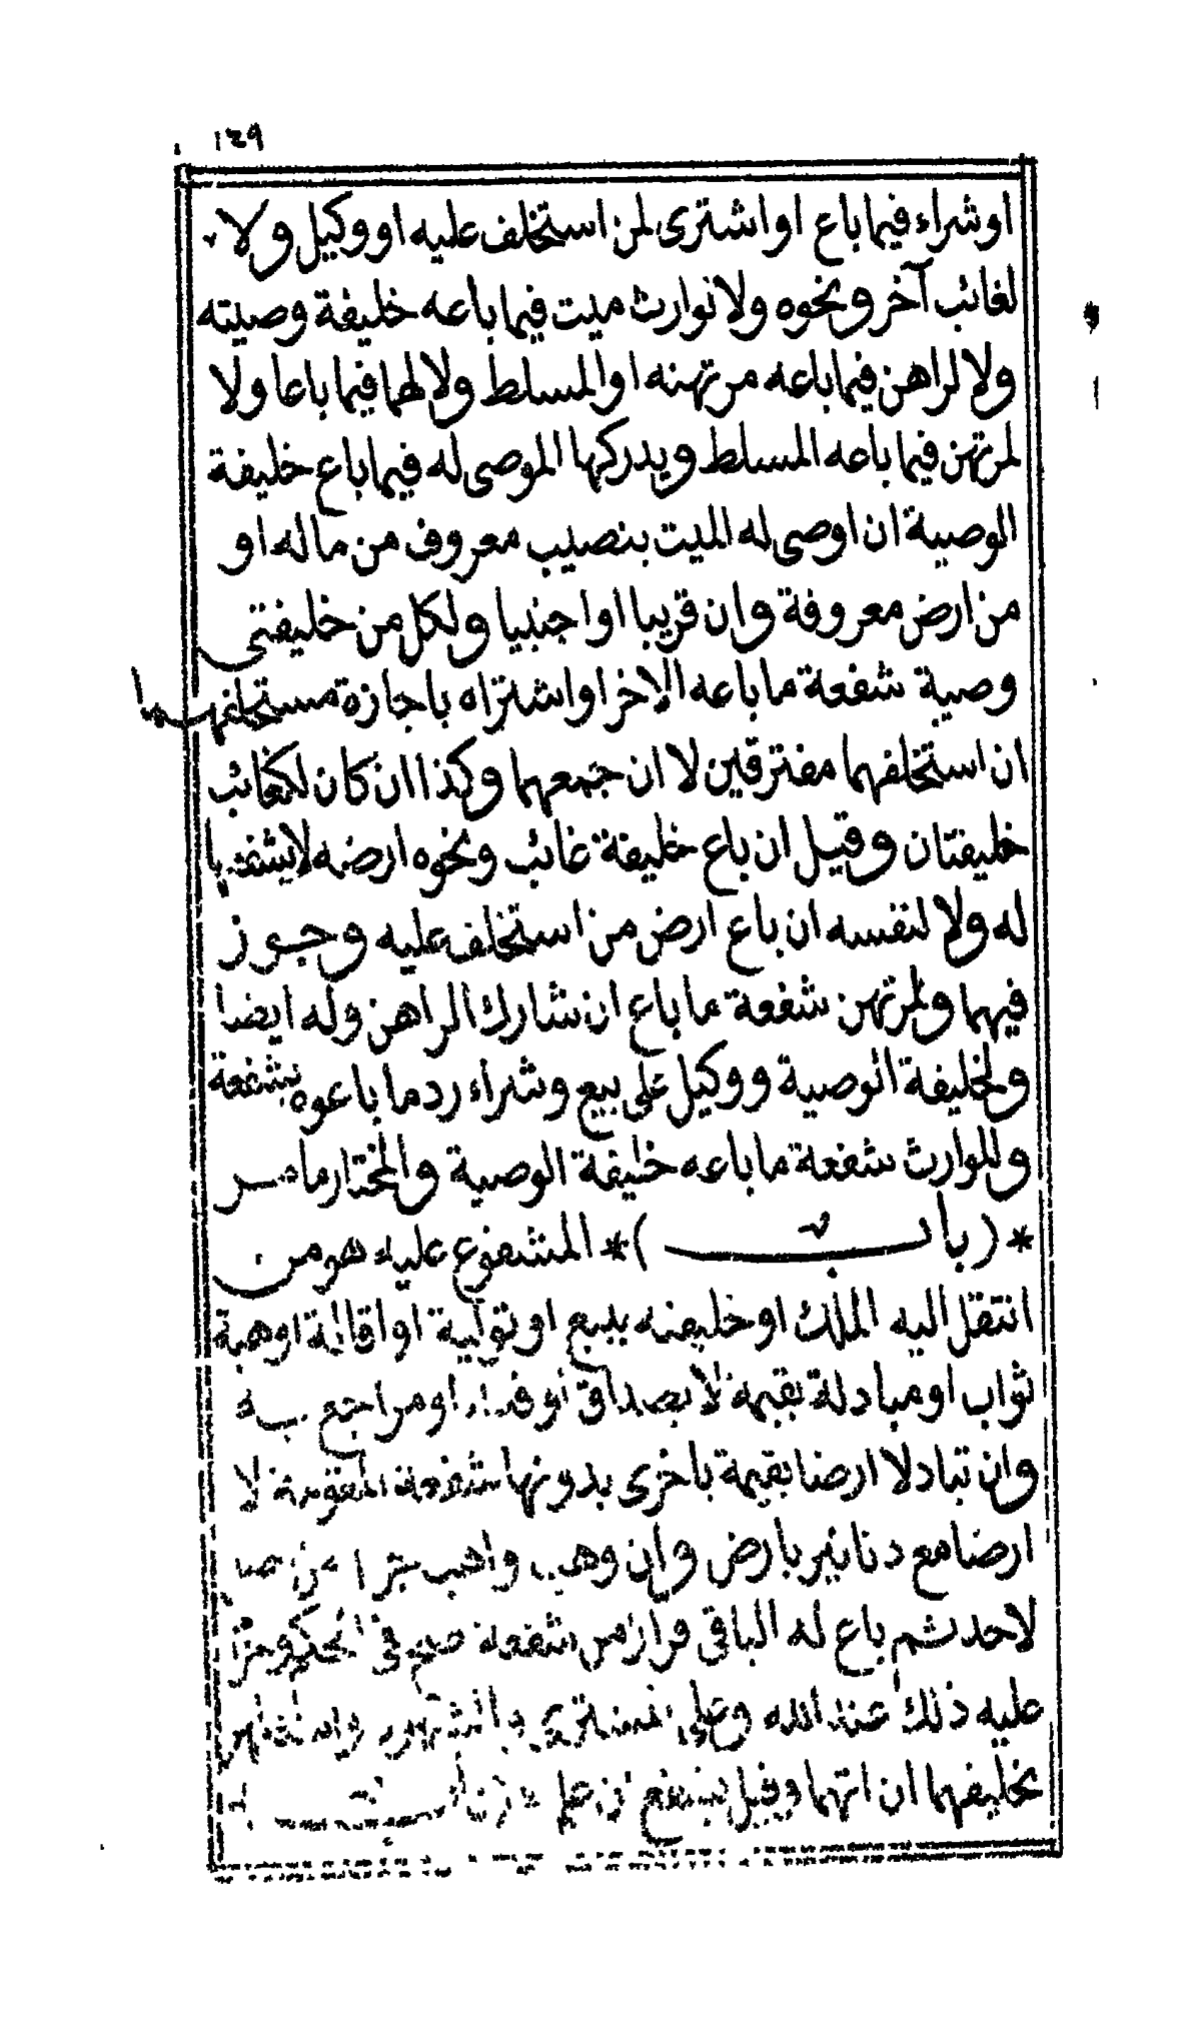 ١٤٩
او شراء فيما باع او اشترى لمن استخلف عليه او وكيل ولا
لغائب آخر ونحوه ولا توارث ميت فيما باعه خليفة وصيته
ولا لراهن فيما باعه مرتهنه او المسلط ولا لهما فيما باعا ولا
لمرتهن فيما باعه المسلط ويدركها الموصى له فيما باع خليفة
الوصية ان اوصى له الميت بنصيب معروف من ماله او
من ارض معروفة وان قريبا او اجنبيا ولكل من خليفتى
وصية شفعة ما باعه الاخر او اشتراه باجازة مستخلفهما
ان استخلفهما مفترقين لا ان جمعهما وكذا ان كان لكغائب
خليفتان وقيل ان باع خليفة غائب ونحوه ارضه لا يشفعها
له ولا لنفسه ان باع ارض من استخلف عليه وجوز
فيهما ولمرتهن شفعة ما باع ان شارك الراهن وله ايضا
ولخليفة الوصية ووكيل على بيع وشراء رد ما باعوه بشفعة
وللوارث شفعة ما باعه خليفة الوصية والمختار ما مر
*(باب)* المشفوع عليه هو من
انتقل اليه الملك او خليفته ببيع او تولية او اقالة او هبة
ثواب او مبادلة بقيمة لا بصداق او فداء او مراجع به
وان تبادلا ارضا بقيمة باخرى بدونها شفعت المقومة لا
ارضا مع دنانير بارض وان وهب واهب جزا من
لاحد ثم باع له الباقى فرارا من شفعة صح فى الحكم وحرم
عليه ذلك عند الله وعلى المشترى
بخليفهما ان اتهما وقيل يشفع ان علم